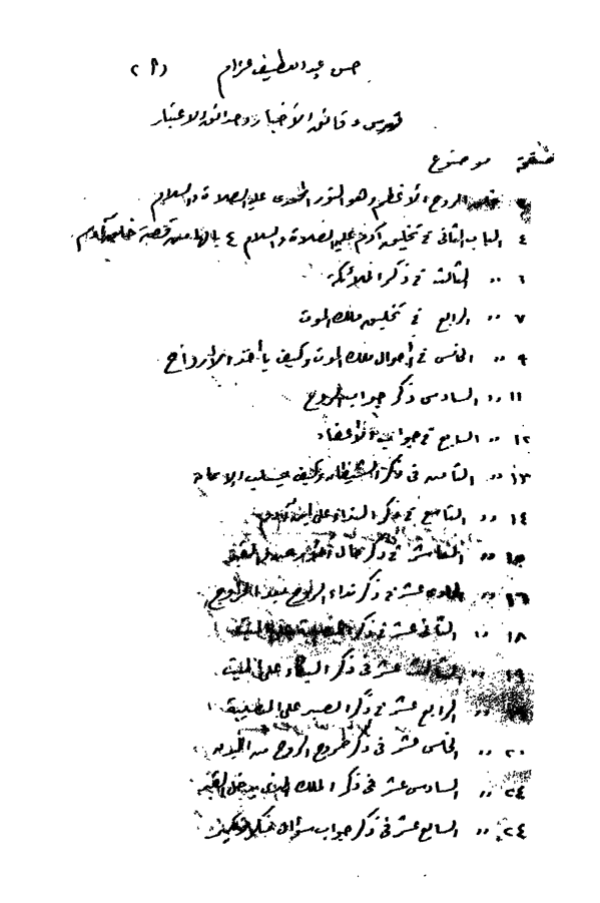 حسن عبد اللطيف عزام (٢٩
فهرس دقائق الأخبار وحدائق الاعتبار
صفحة موضوع
الروح الأعظم وهو النور المحمدى عليه الصلاة والسلام
٤ الباب الثانى فى تخليق آدم عليه الصلاة والسلام ٤
٦ ,, الثالث فى ذكر الملائكة
٧ ,, الرابع فى تخليق ملك الموت
٩ ,, الخامس فى أحوال ملك الموت وكيف يأخذ الأرواح
١١ ,, السادس ذكر جواب الروح
١٢ ,, السابع فى جواب الأعضاء
١٣ ,, الثامن فى ذكر الشيطان وكيف يسلب الإيمان
١٤ ,, التاسع فى ذكر النداء
,, العاشر فى ذكر
١٦ ,, الحادى عشر فى ذكر نداء الروح بعد الخروج
١٨ ,, الثانى عشر فى ذكر المصيبة على الميت
١٩ ,, الثالث عشر فى ذكر البكاء على الميت
,, الرابع عشر فى ذكر الصبر على المصيبة
٢٠ ,, الخامس عشر فى ذكر خروج الروح من البدن
٢٤ ,, السادس عشر فى ذكر الملك الذى يدخل القبر
٢٤ ,, السابع عشر فى ذكر جواب سؤال منكر ونكير